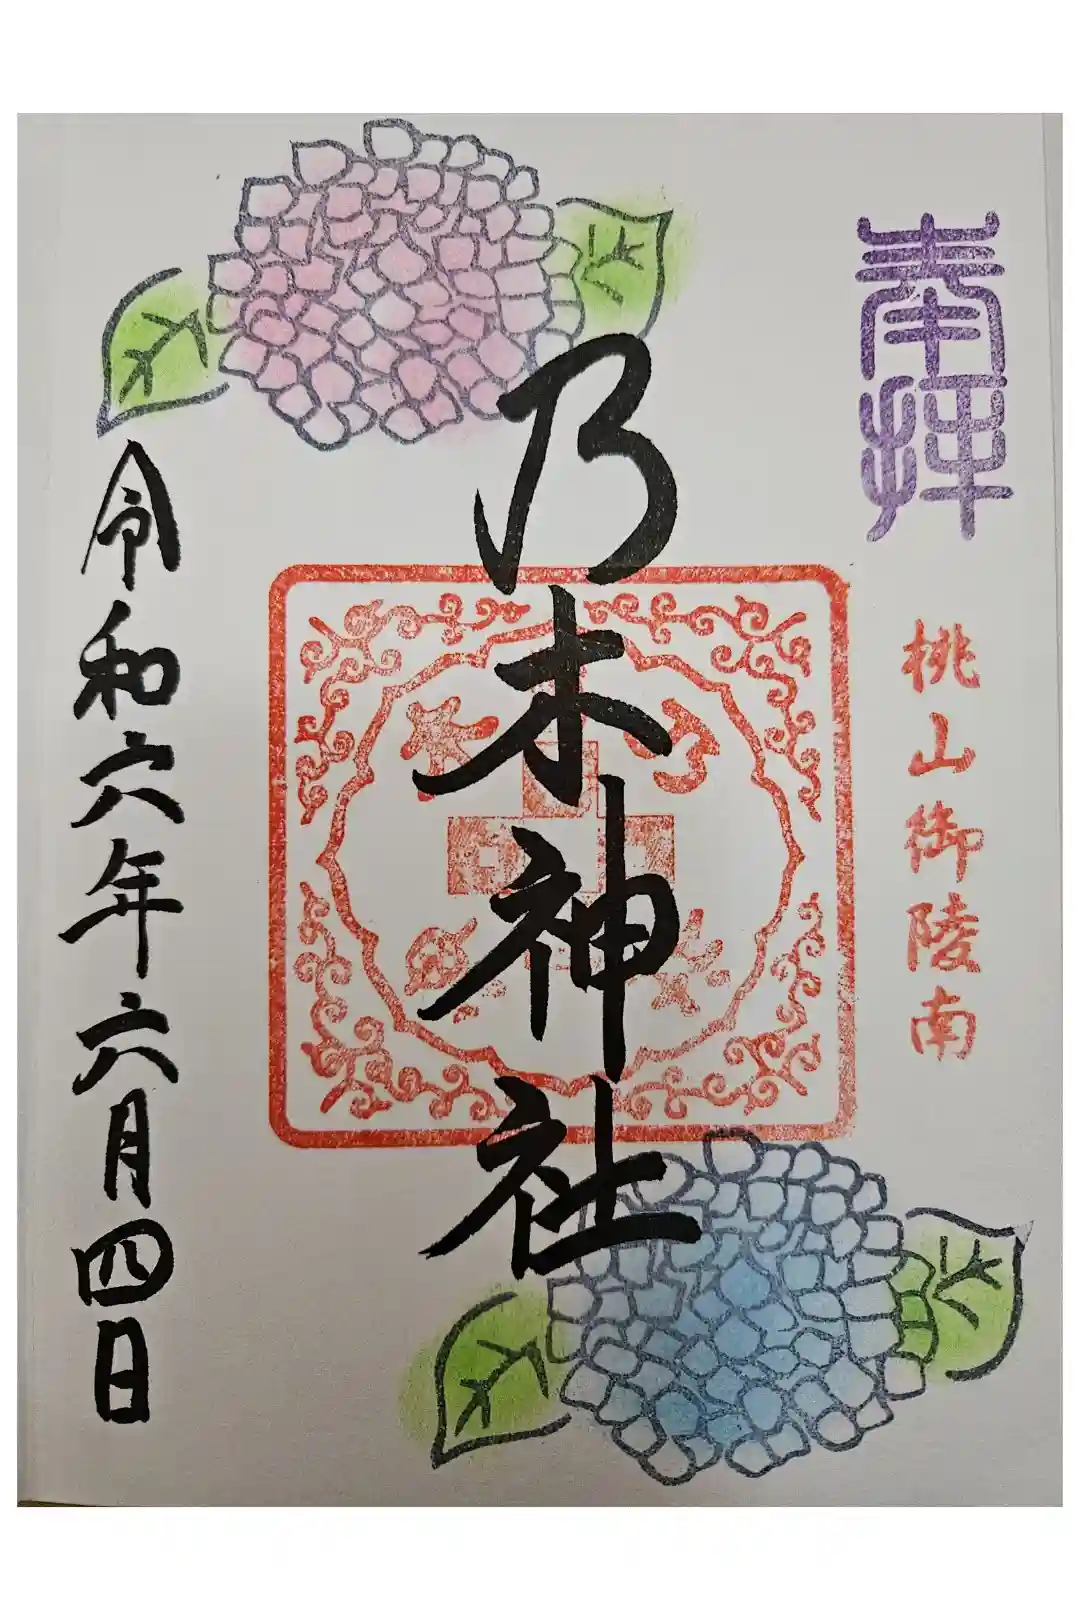 奉拝
桃山御陵南
乃木神社
令和六年六月四日